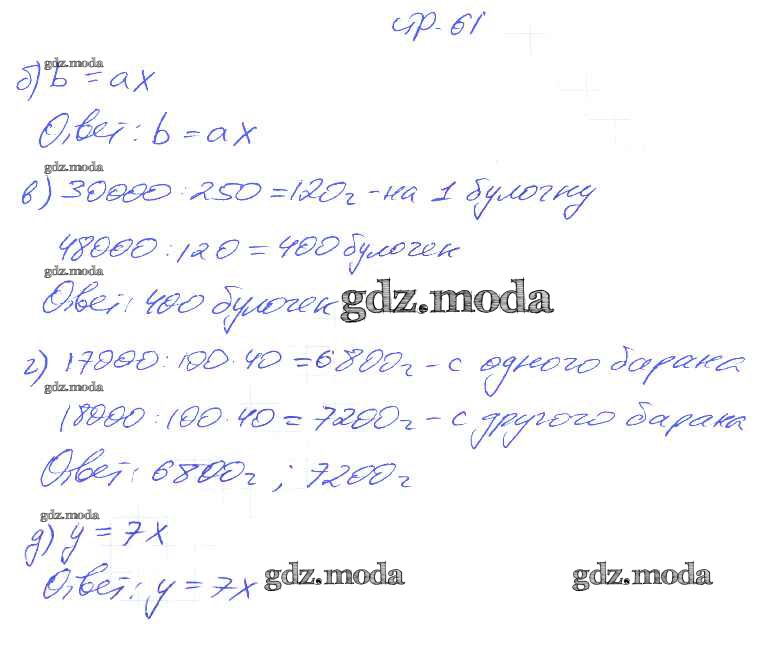 стр. 61
gdz.moda
б) b = ax
Ответ: b = ax
gdz.moda
в) 30000 : 250 = 120г - на 1 булочку
48000 : 120 = 400 булочек
gdz.moda
Ответ: 400 булочек gdz.moda
г) 17000 : 100 · 40 = 6800г - с одного барана
gdz.moda
18000 : 100 · 40 = 7200г - с другого барана
Ответ: 6800г ; 7200г
gdz.moda
д) y = 7x
Ответ: y = 7x gdz.moda gdz.moda